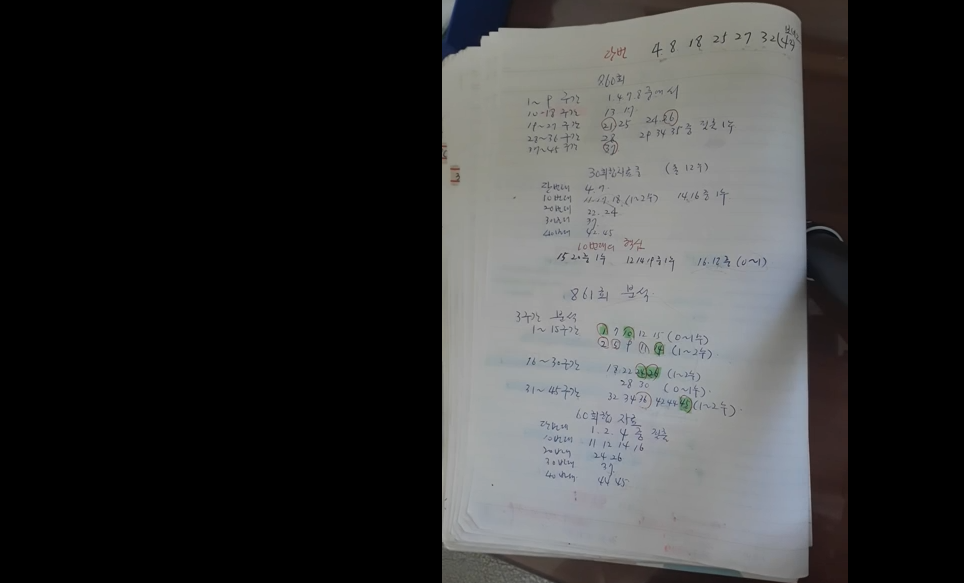 4 8 18 25 27 32 (42)
1~9 구간 1.4.7.8 중에서
10~18 구간 13 17
19~27 구간 21 25 24 26
28~36 구간 28 29 34 35 중 필출 1수
37~45 구간 37
(총 12수)
단번대 4.7
10번대 (1~2수) 14.16 중 1수
20번대 22.24
30번대 37
40번대 42.45
15.20중 1수 12 14 19중 1수 16.18중 (0~1)
861회 분석
3구간 분석
1~15구간 1 7 10 12 15 (0~1수)
2 5 9 11 14 (1~2수)
16~30구간 18.22 26 (1~2수)
28 30 (0~1수)
31~45구간 32 34 36 42 44 45 (1~2수)
60회합 자료
단번대 1.2.4 중 필출
10번대 11 12 14 16
20번대 24 26
30번대 37
40번대 44 45